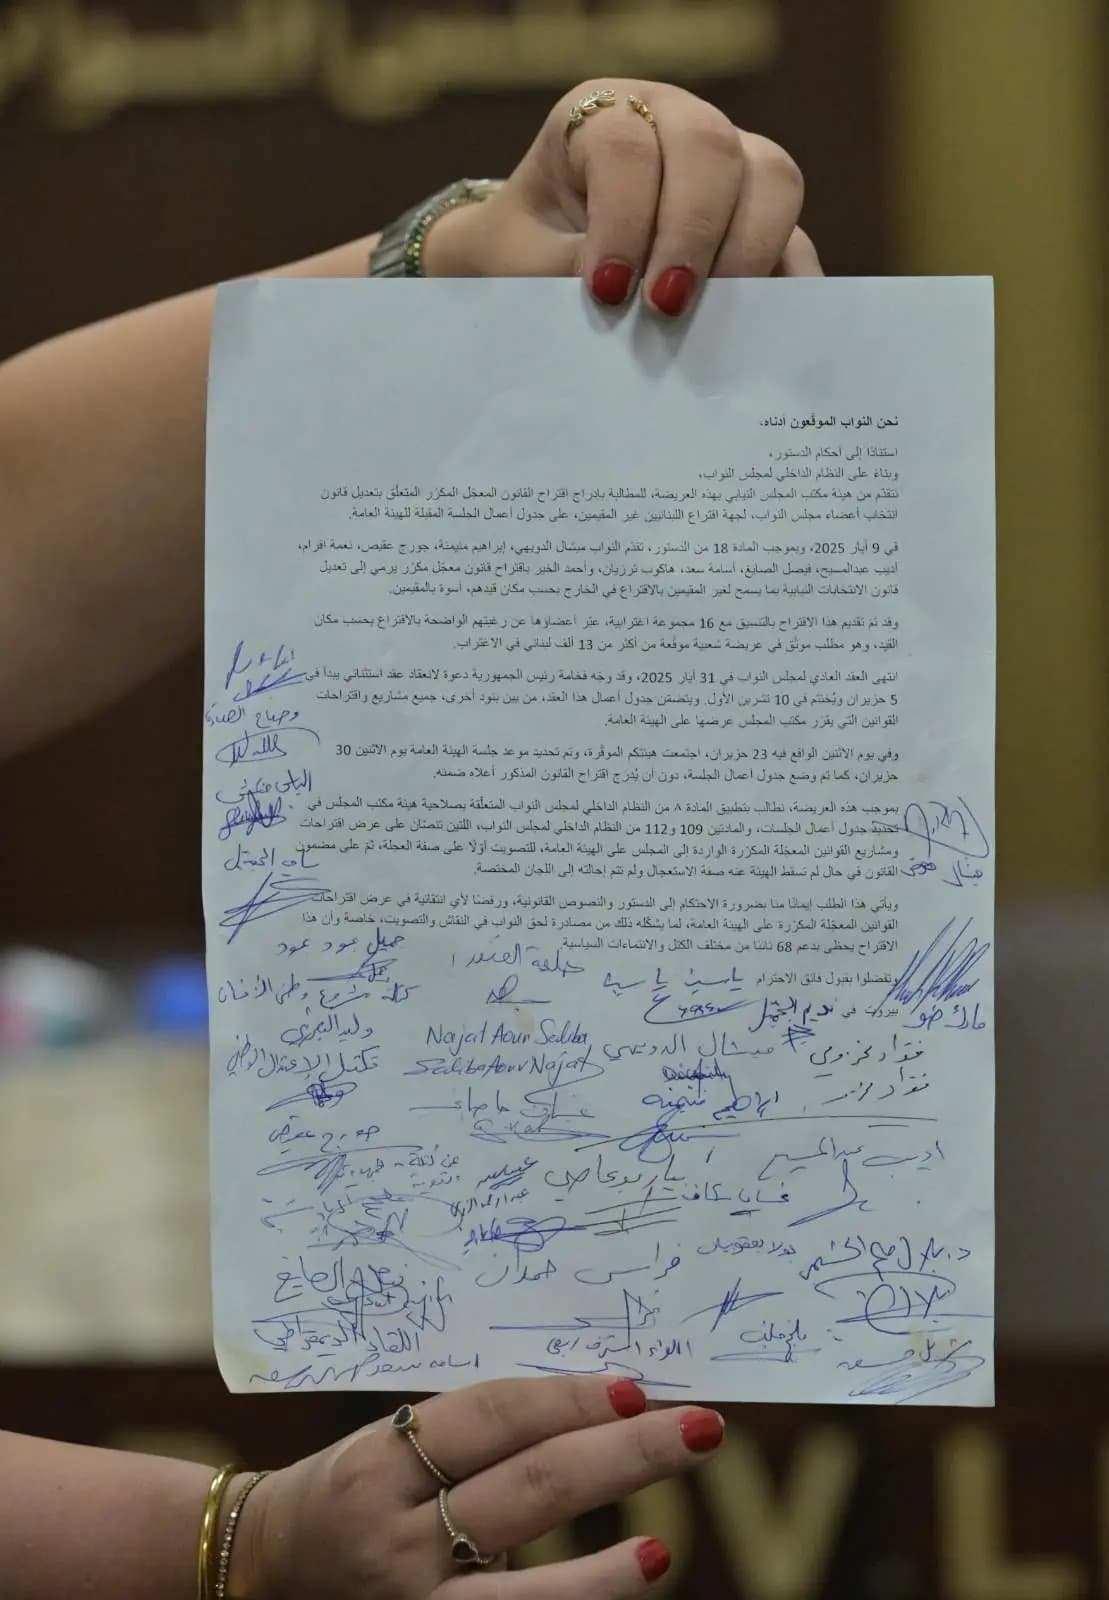 نحن النواب الموقّعون أدناه،
استنادًا إلى أحكام الدستور،
وبناءً على النظام الداخلي لمجلس النواب،
نتقدّم من هيئة مكتب المجلس النيابي بهذه العريضة، للمطالبة بإدراج اقتراح القانون المعجّل المكرّر المتعلّق بتعديل قانون
انتخاب أعضاء مجلس النواب، لجهة اقتراع اللبنانيين غير المقيمين، على جدول أعمال الجلسة المقبلة للهيئة العامة.
في 9 أيار 2025، وبموجب المادة 18 من الدستور، تقدّم النواب ميشال الدويهي، إبراهيم منيمنة، جورج عقيص، نعمة افرام،
أديب عبدالمسيح، فيصل الصايغ، أسامة سعد، هاكوب ترزيان، وأحمد الخير باقتراح قانون معجّل مكرّر يرمي إلى تعديل
قانون الانتخابات النيابية بما يسمح لغير المقيمين بالاقتراع في الخارج بحسب مكان قيدهم، أسوة بالمقيمين.
وقد تمّ تقديم هذا الاقتراح بالتنسيق مع 16 مجموعة اغترابية، عبّر أعضاؤها عن رغبتهم الواضحة بالاقتراع بحسب مكان
القيد، وهو مطلب موثّق في عريضة شعبية موقّعة من أكثر من 13 ألف لبناني في الاغتراب.
انتهى العقد العادي لمجلس النواب في 31 أيار 2025، وقد وجّه فخامة رئيس الجمهورية دعوة لانعقاد عقد استثنائي يبدأ في
5 حزيران ويُختتم في 10 تشرين الأول. ويتضمّن جدول أعمال هذا العقد، من بين بنود أخرى، جميع مشاريع واقتراحات
القوانين التي يقرّر مكتب المجلس عرضها على الهيئة العامة.
وفي يوم الاثنين الواقع فيه 23 حزيران، اجتمعت هيئتكم الموقّرة، وتم تحديد موعد جلسة الهيئة العامة يوم الاثنين 30
حزيران، كما تم وضع جدول أعمال الجلسة، دون أن يُدرَج اقتراح القانون المذكور أعلاه ضمنه.
بموجب هذه العريضة، نطالب بتطبيق المادة ٨ من النظام الداخلي لمجلس النواب المتعلّقة بصلاحية هيئة مكتب المجلس في
تحديد جدول أعمال الجلسات، والمادتين 109 و112 من النظام الداخلي لمجلس النواب، اللتين تنصّان على عرض اقتراحات
ومشاريع القوانين المعجّلة المكرّرة الواردة إلى المجلس على الهيئة العامة، للتصويت أوّلا على صفة العجلة، ثمّ على مضمون
القانون في حال لم تسقط الهيئة عنه صفة الاستعجال ولم تتم إحالته إلى اللجان المختصة.
ويأتي هذا الطلب إيمانًا منا بضرورة الاحتكام إلى الدستور والنصوص القانونية، ورفضًا لأي انتقائية في عرض اقتراحات
القوانين المعجّلة المكرّرة على الهيئة العامة، لما يشكّله ذلك من مصادرة لحق النواب في النقاش والتصويت، خاصة وأن هذا
الاقتراح يحظى بدعم 68 نائبًا من مختلف الكتل والانتماءات السياسية.
وتفضلوا بقبول فائق الاحترام
بيروت في
الياس حنكش
سامي الجميّل
ميشال معوض
جميل عبود عبود
حليمة القعقور
ياسين ياسين
نديم الجميّل
مارك ضو
وليد البعريني
تكتل الاعتدال الوطني
Najat Aoun Saliba
Saliba Aoun Najat
ميشال الدويهي
فؤاد مخزومي
فؤاد مخزومي
ابراهيم منيمنة
جورج عقيص
بيار بو عاصي
أديب عبد المسيح
غسان سكاف
بولا يعقوبيان
فراس حمدان
فيصل الصايغ
اللقاء الديمقراطي
ملحم خلف
اللواء اشرف ريفي
اسامه سعد